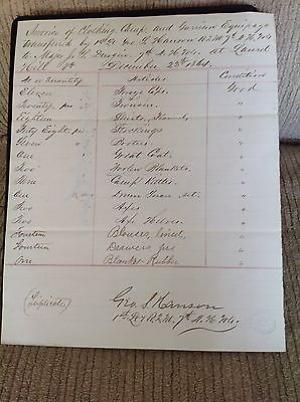 Invoice of Clothing Camp and Garrison Equipage
by 1st Lt Geo. S. Hanson R.Q.M. 7th N.H. Vols
to Major J. 7th N.H. Vols. at Laurel
Hill Va December 23rd 1864.
No or Quantity Articles Condition
Eleven Caps. Good
Twenty prs Trousers. "
Eighteen Shirts, Flannel "
Fifty Eight prs Stockings "
Seven " Bootees "
One Great Coat. "
Two Woolen Blankets "
Camp Kettles "
One "
Two Axes "
Two Axe Helves "
Fourteen Blouses, lined, "
Fourteen Drawers prs "
One Blanket Rubber "
(Duplicate)
Geo. S. Hanson
1st Lt & R.Q.M. 7th N.H. Vols.